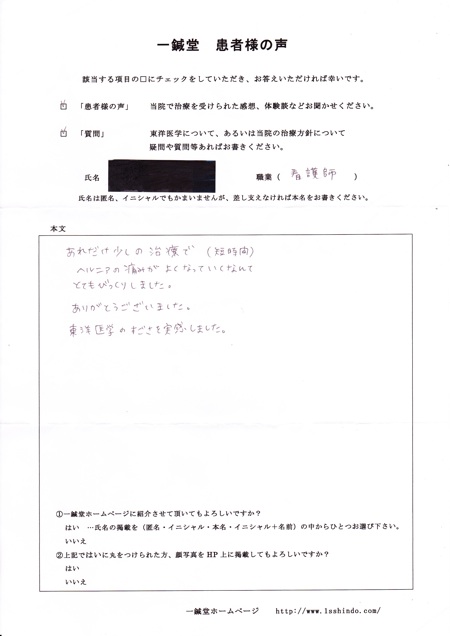 一鍼堂 患者様の声
該当する項目の□にチェックをしていただき、お答えいただければ幸いです。
☑ 「患者様の声」 当院で治療を受けられた感想、体験談などお聞かせください。
☑ 「質問」 東洋医学について、あるいは当院の治療方針について
疑問や質問等あればお書きください。
氏名 職業( 看護師 )
氏名は匿名、イニシャルでもかまいませんが、差し支えなければ本名をお書きください。
本文
あれだけ少しの治療で (短時間)
ヘルニアの痛みがよくなっていくなんて
とてもびっくりしました。
ありがとうございました。
東洋医学のすごさを実感しました。
①一鍼堂ホームページに紹介させて頂いてもよろしいですか?
はい …氏名の掲載を(匿名・イニシャル・本名・イニシャル+名前)の中からひとつお選び下さい。
いいえ
②上記ではいに丸をつけられた方、顔写真をHP上に掲載してもよろしいですか?
はい
いいえ
一鍼堂ホームページ http://www.1sshindo.com/